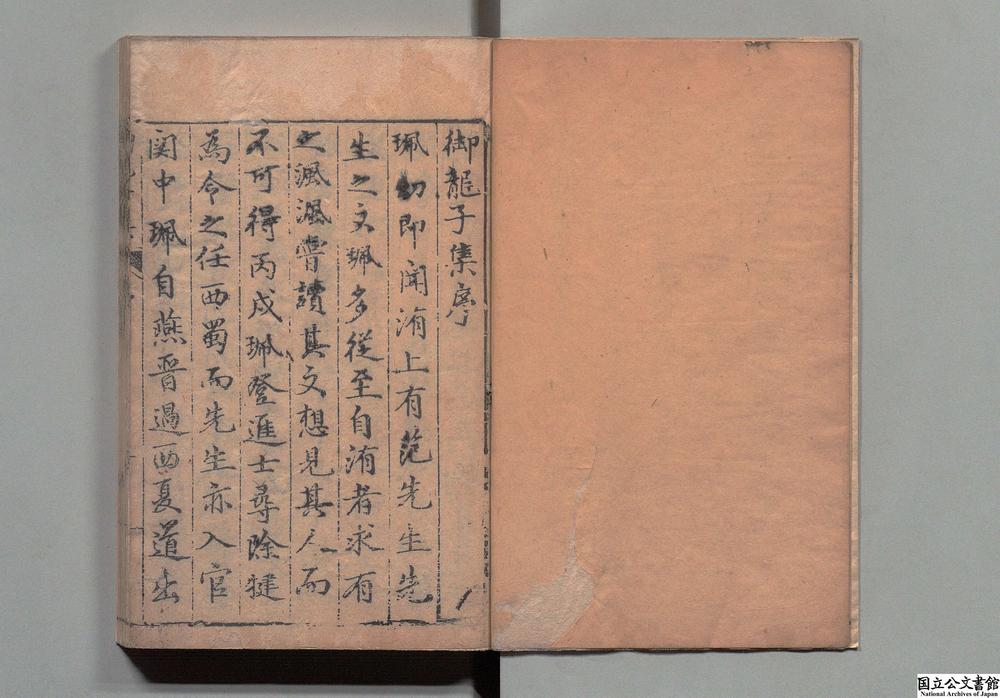 御龍子集序
珮幼即聞洧上有范先生先
生之文珮多從至自洧者求有
之渢渢嘗讀其文想見其人而
不可得丙戌珮登進士尋除犍
為令之任西蜀而先生亦入官
関中珮自燕晋過西夏道出
国立公文書館
National Archives of Japan